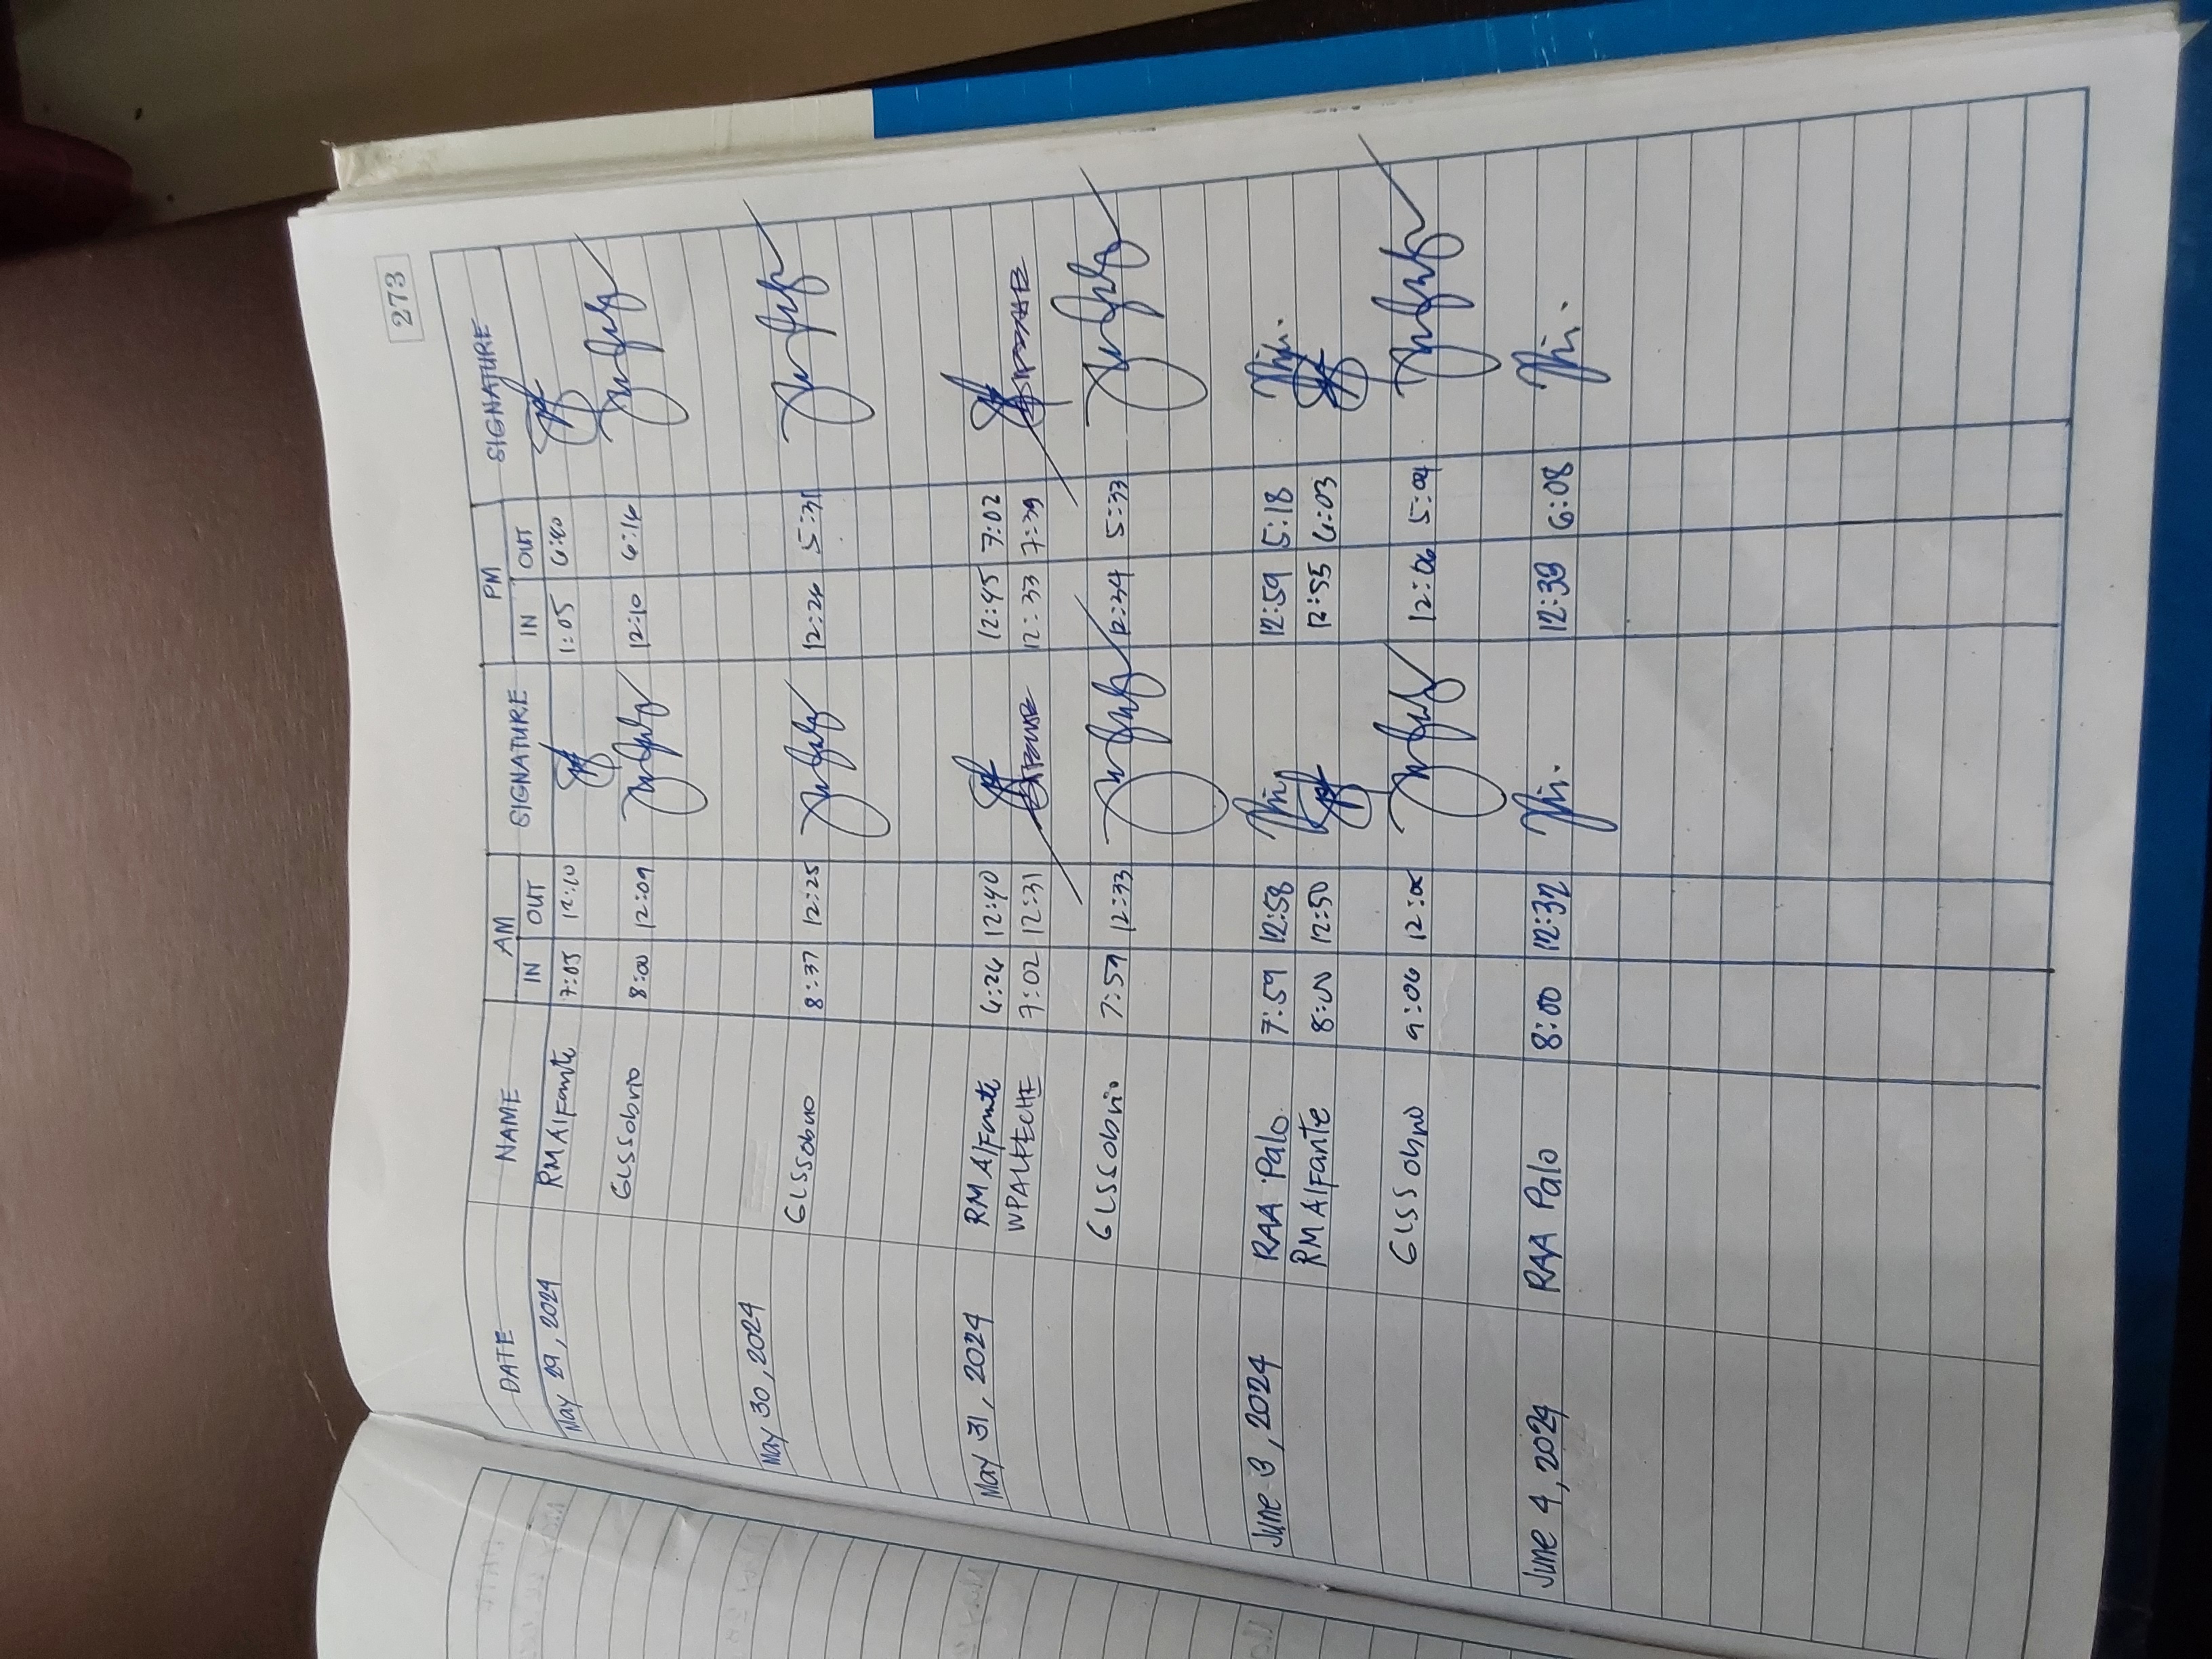 273
DATE NAME AM SIGNATURE PM SIGNATURE
IN OUT IN OUT
May 29, 2024 RMAlfante 7:05 12:10 1:05 6:40
GLSSobrio 8:00 12:09 12:10 6:16
May 30, 2024
GLSSobrio 8:37 12:25 12:26 5:31
May 31, 2024 RMAlfante 6:26 12:40 12:45 7:02
WPALKECHE 7:02 12:31 12:33 7:39
GLSSobrio 7:59 12:33 12:34 5:33
June 3, 2024 RAA Palo 7:59 12:58 12:59 5:18
RMAlfante 8:00 12:50 12:55 6:03
GLSSobrio 9:06 12:06 5:04
June 4, 2024 RAA Palo 8:00 12:32 12:33 6:08